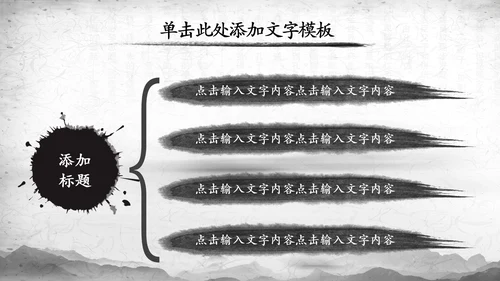 单击此处添加文字模板
点击输入文字内容点击输入文字内容
点击输入文字内容点击输入文字内容
添加
标题
点击输入文字内容点击输入文字内容
点击输入文字内容点击输入文字内容